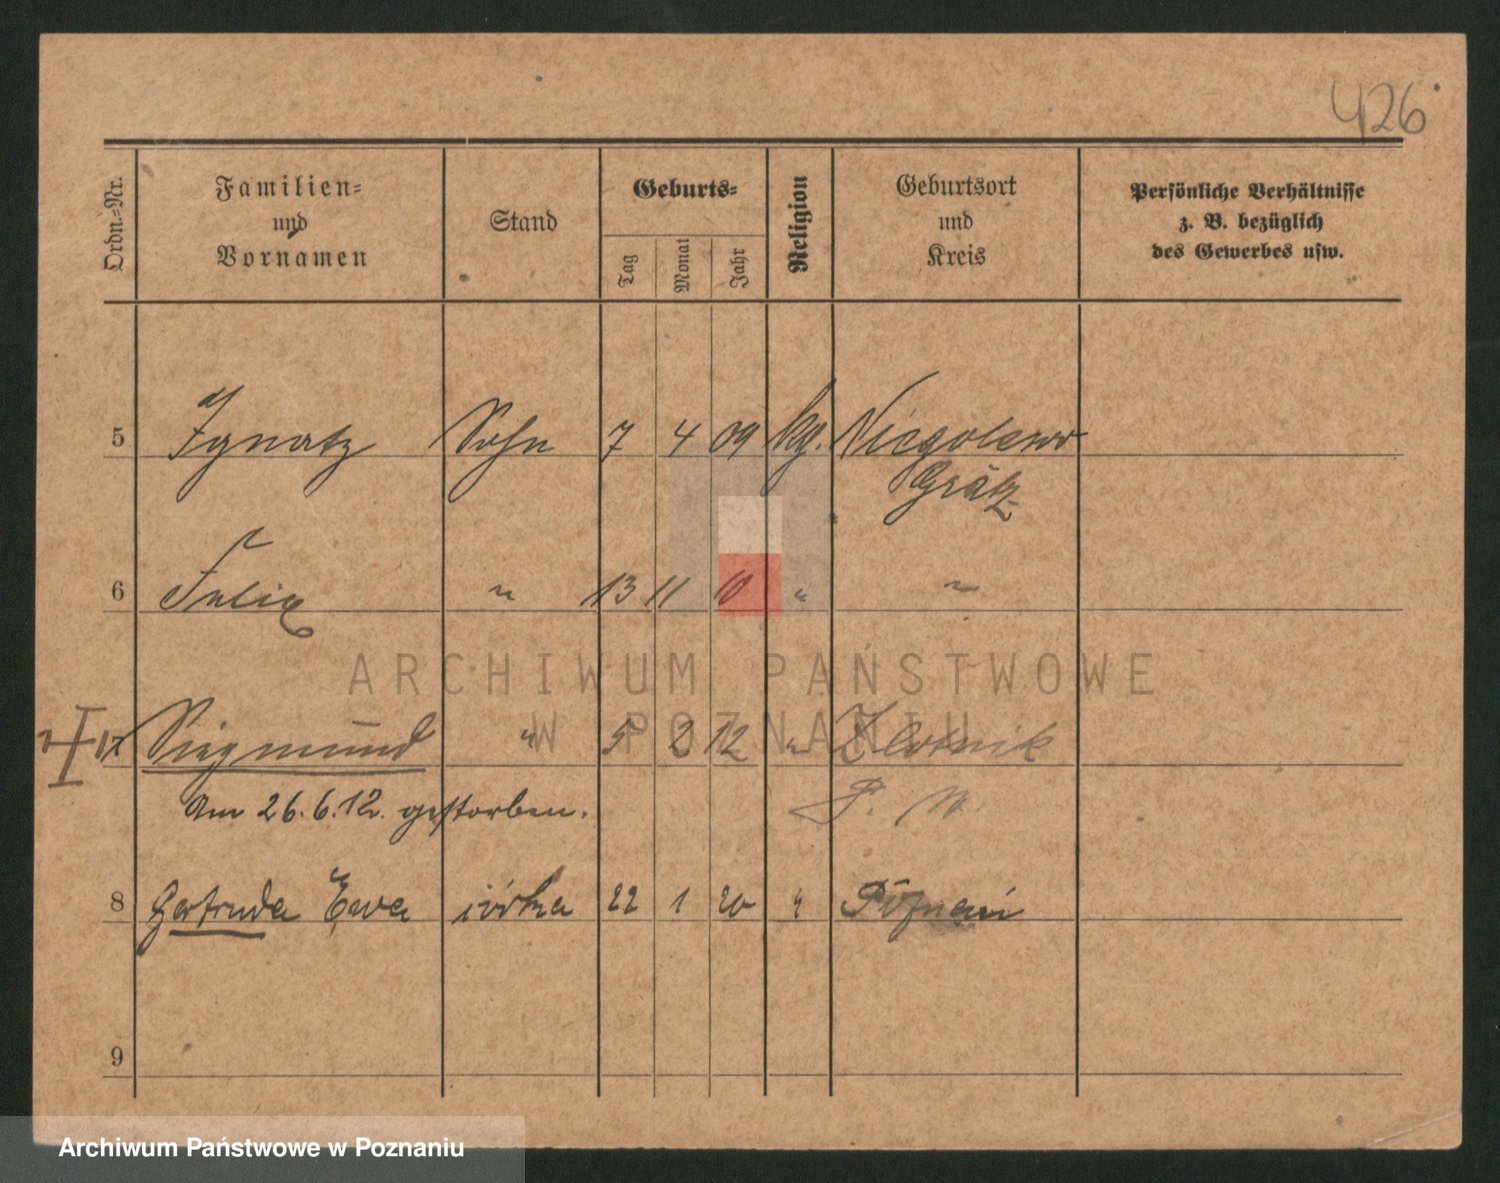 426
Ordn.=Nr.
Familien=
und
Vornamen
Stand
Geburts=
Tag
Monat
Jahr
Religion
Geburtsort
und
Kreis
Persönliche Verhältnisse
z. B. bezüglich
des Gewerbes usw.
5 Ignatz Sohn 7 4 09 kg. Niegolewo
Grätz
6 Felix " 13 11 10 " "
ARCHIWUM PAŃSTWOWE
W POZNANIU
7 Siegmund " 5 2 12 " Zlotnik
P. W.
Am 26.6.12. gestorben.
8 Gertruda Ewa córka 22 1 20 " Poznań
9
Archiwum Państwowe w Poznaniu